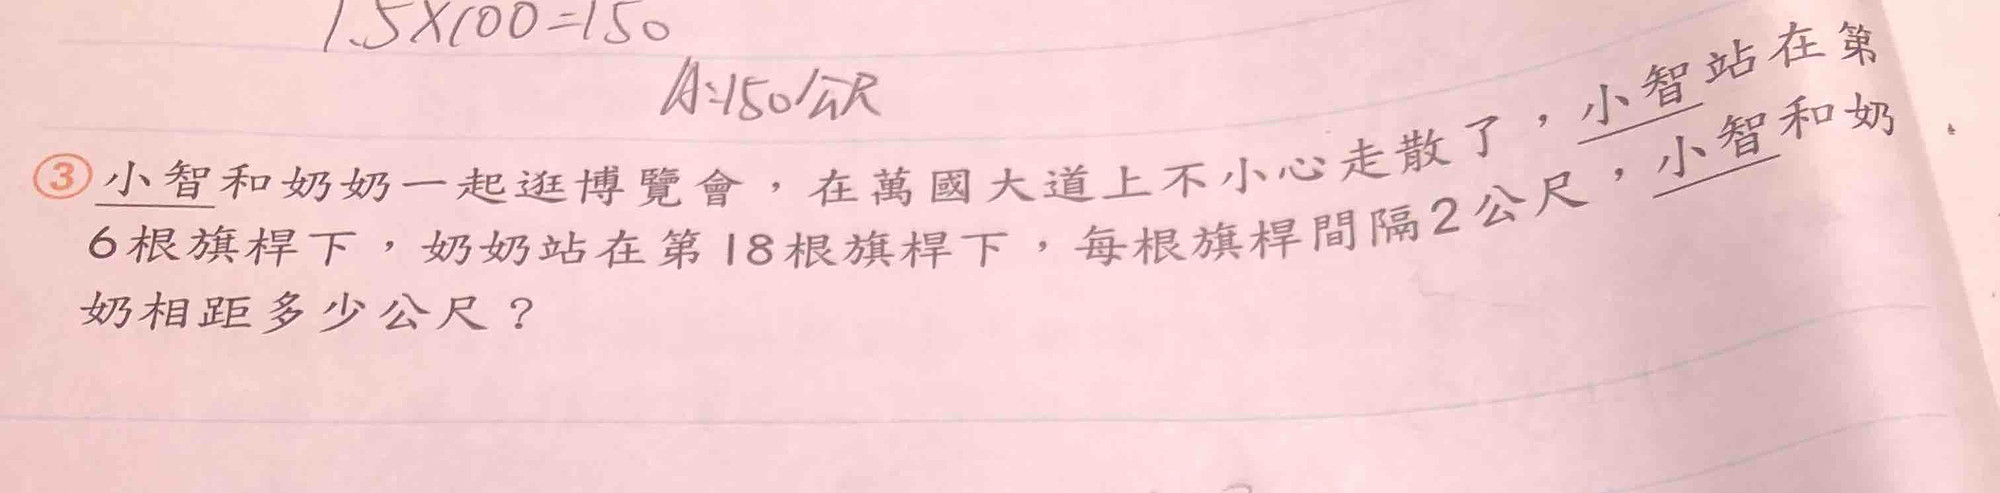 1.5×100=150
A:150公尺
③小智和奶奶一起逛博覽會，在萬國大道上不小心走散了，小智站在第
6根旗桿下，奶奶站在第18根旗桿下，每根旗桿間隔2公尺，小智和奶
奶相距多少公尺？